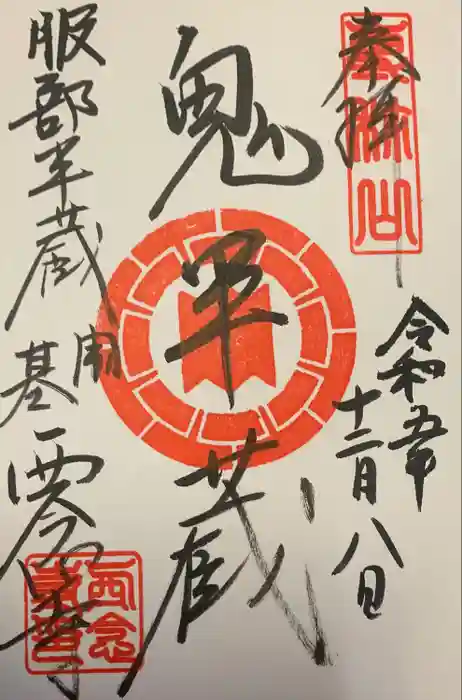 奉拝
令和五年
十二月八日
鬼半蔵
服部半蔵
開基
西念寺
西念